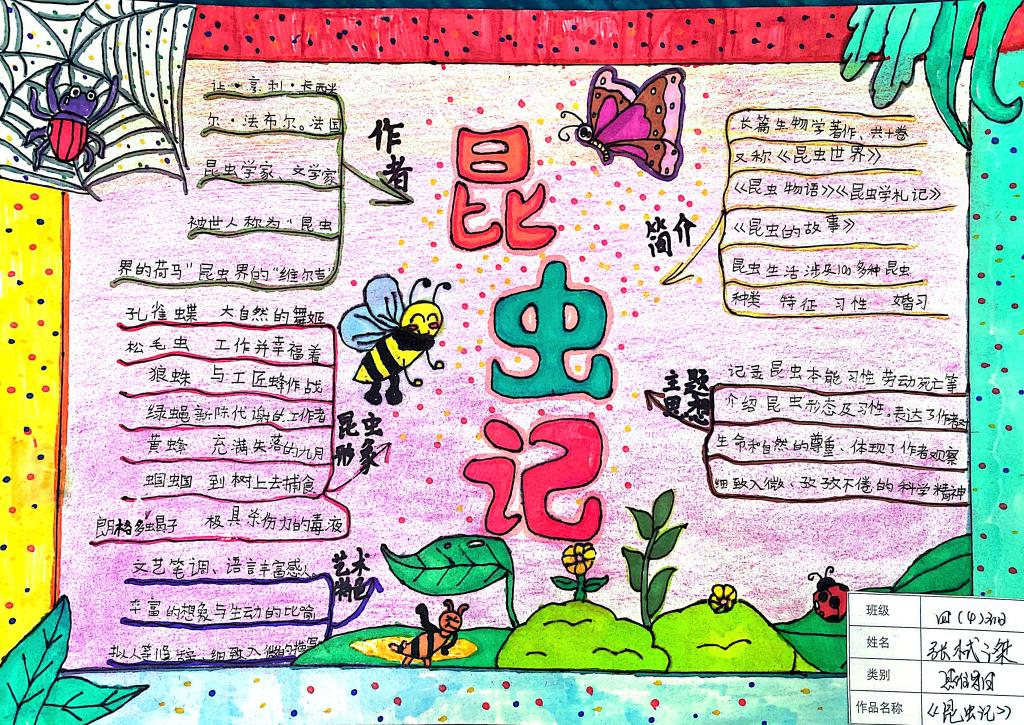 昆虫记
作者
让·亨利·卡西米
尔·法布尔。法国
昆虫学家、文学家
被世人称为"昆虫
界的荷马"昆虫界的"维尔吉"
简介
长篇生物学著作、共十卷
又称《昆虫世界》
《昆虫物语》《昆虫学札记》
《昆虫的故事》
昆虫生活涉及100多种昆虫
种类 特征 习性 婚习
昆虫形象
孔雀蝶 大自然的舞姬
松毛虫 工作并幸福着
狼蛛 与工匠蜂作战
绿蝇新陈代谢的工作者
黄蜂 充满失落的九月
蝈蝈 到树上去捕食
朗格多蝎子 极具杀伤力的毒液
主题思想
记录昆虫本能习性劳动死亡等
介绍昆虫形态及习性。表达了作者对
生命和自然的尊重、体现了作者观察
细致入微、孜孜不倦的科学精神
艺术特色
文艺笔调、语言丰富感人
丰富的想象与生动的比喻
拟人等修辞 细致入微的描写
班级 四(4)班
姓名
类别 思维导图
作品名称 《昆虫记》